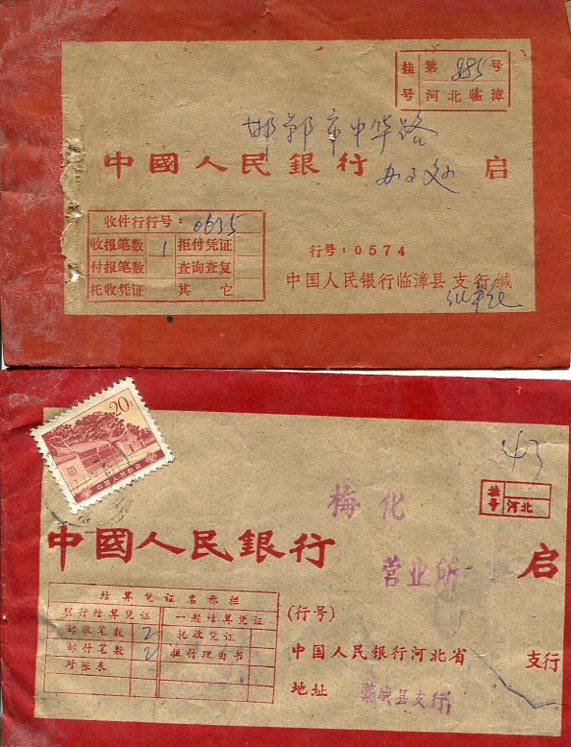 挂号 第885号
河北临漳
邯郸市中华路
中國人民銀行 办事处 启
收件行行号：0635
收报笔数 1 拒付凭证
付报笔数 查询查复
托收凭证 其它
行号：0574
中国人民银行临漳县支行缄
20
中国人民邮政
43
挂号 河北
梅化
中國人民銀行 启
营业所
结算凭证名称栏
联行结算凭证 一般结算凭证
邮收笔数 2 托收凭证
邮付笔数 2 拒付理由书
对帐表
(行号)
中国人民银行河北省 支行
地址 藁城县支行